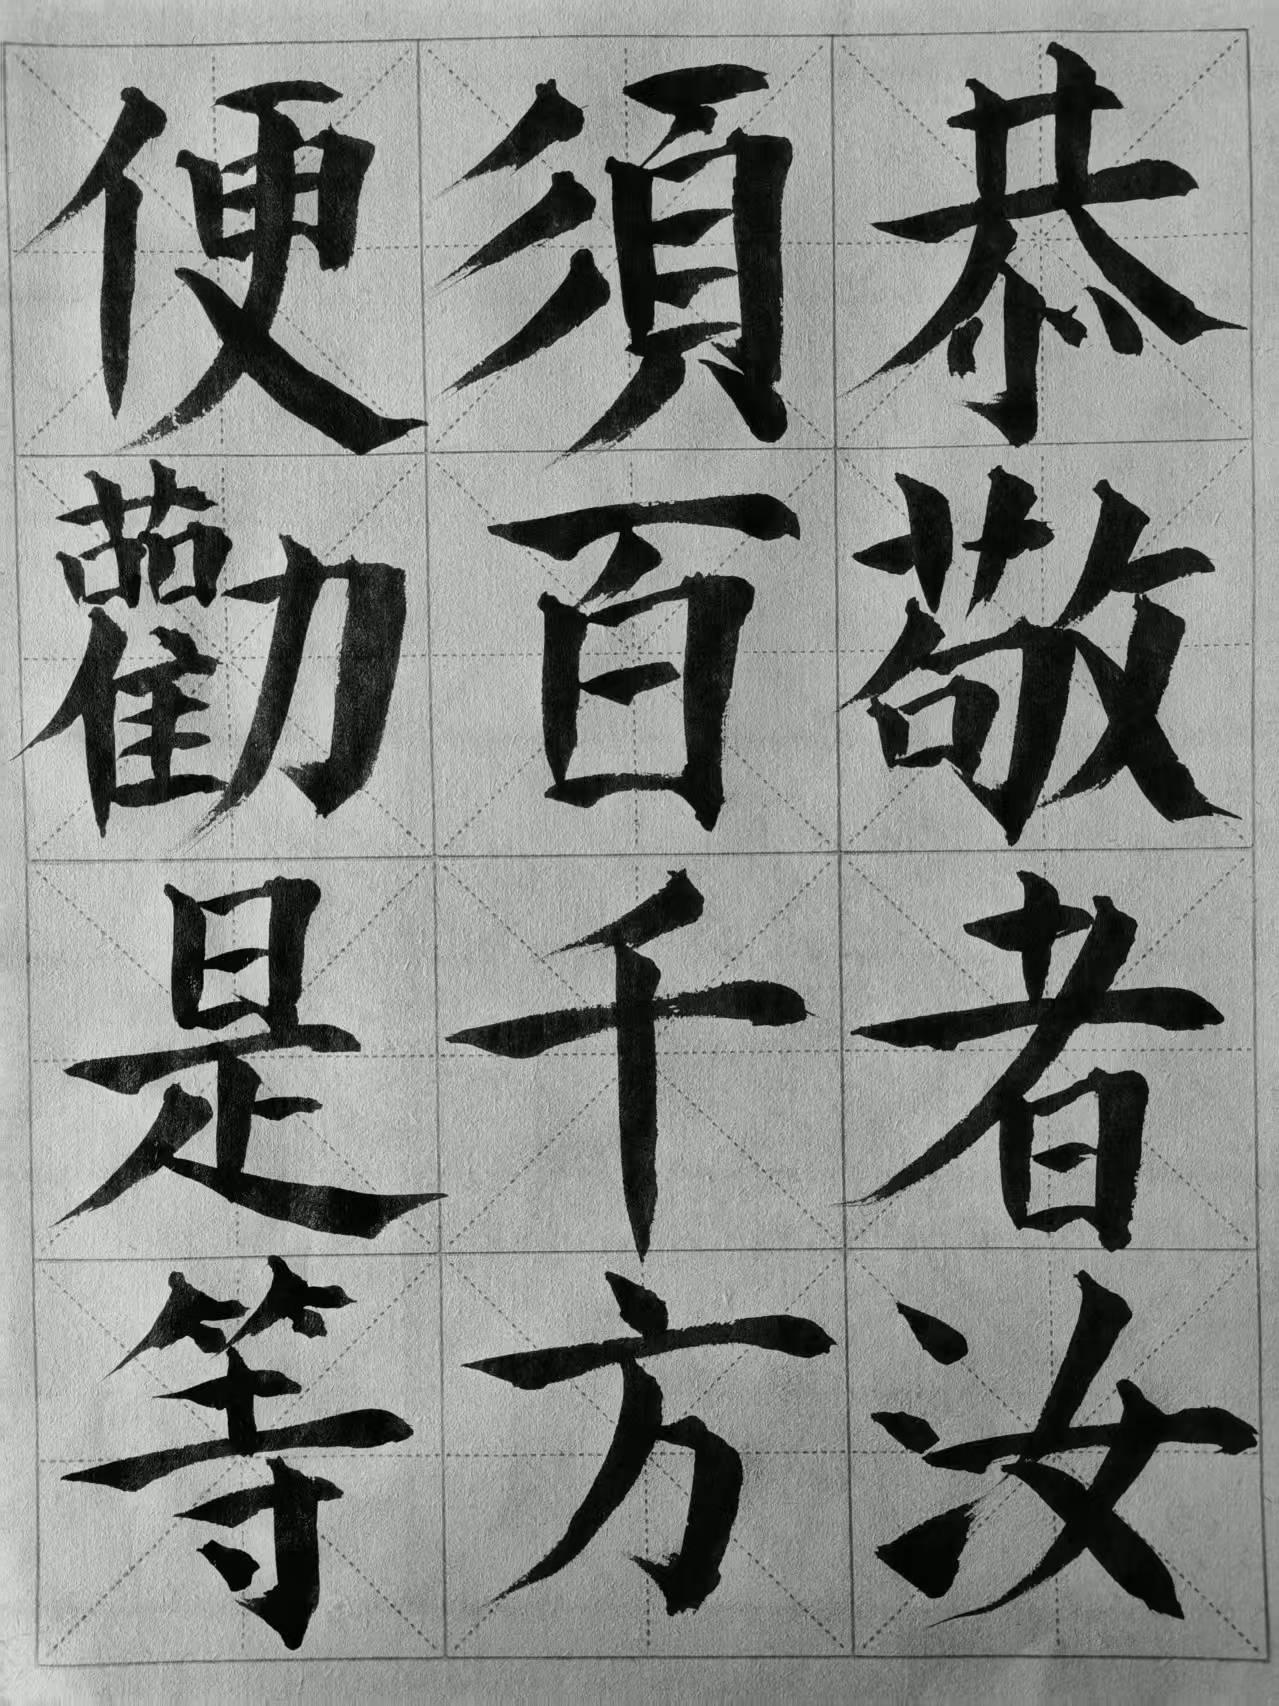 恭敬者汝
須百千方
便勸是等